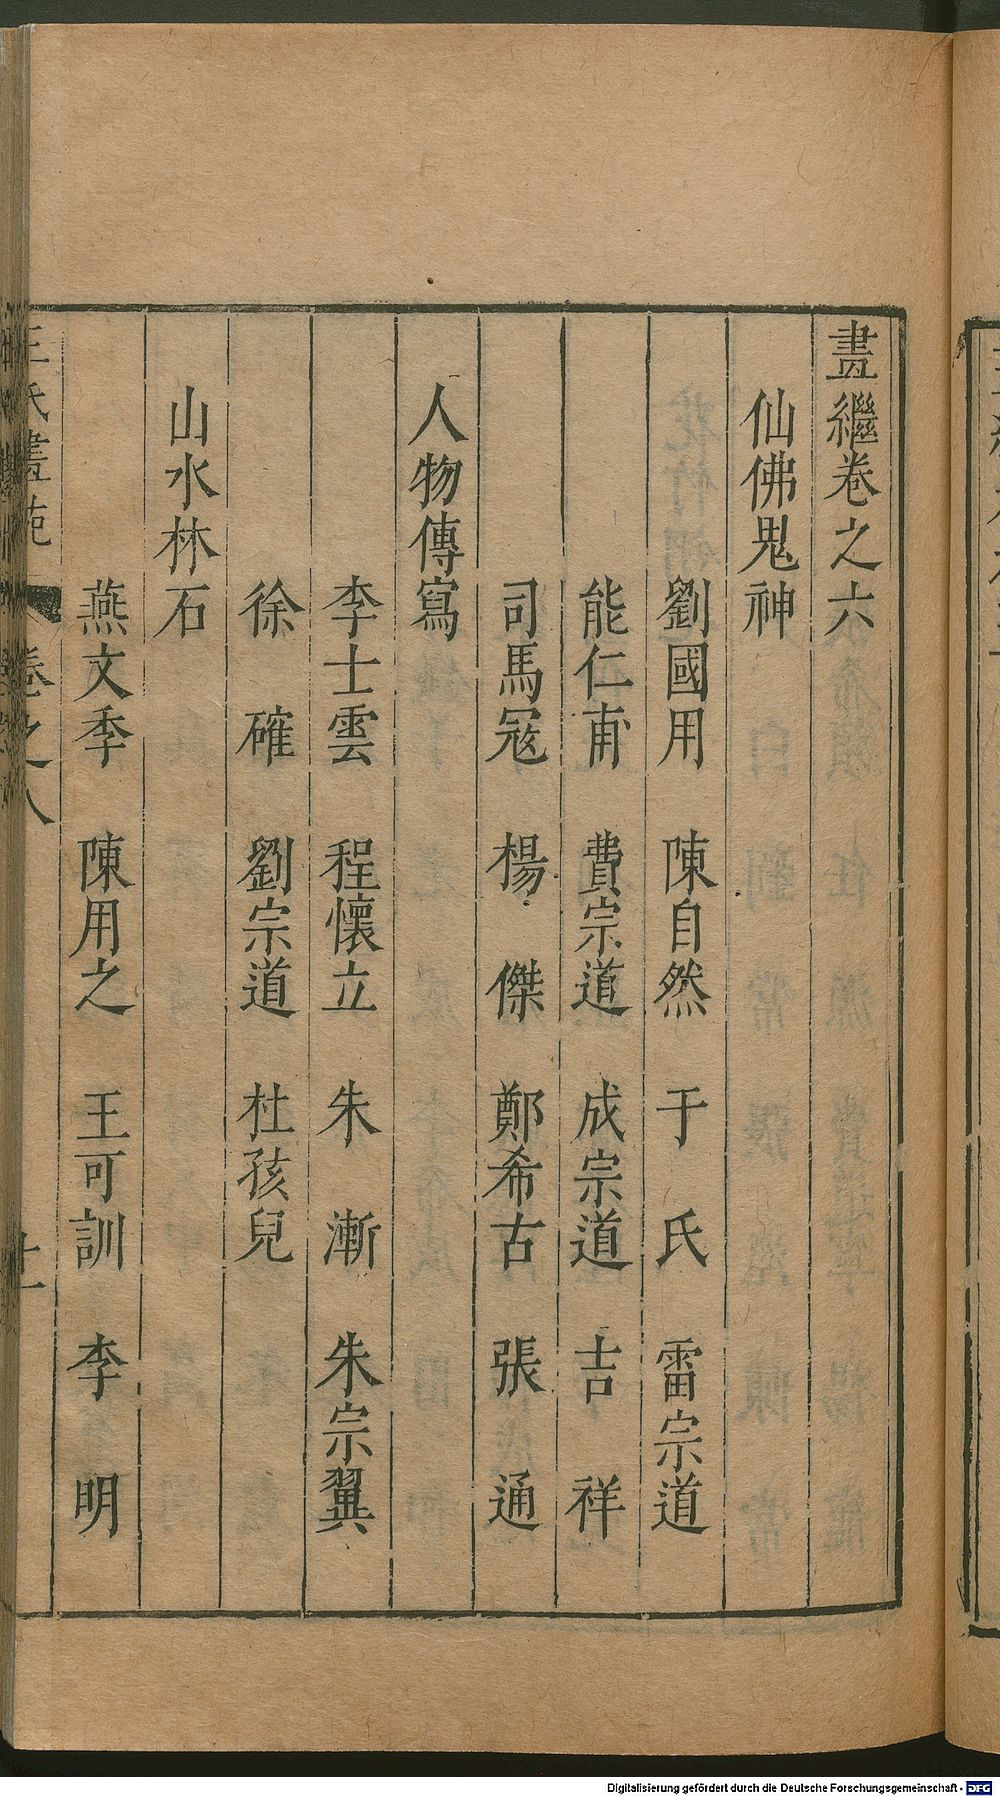 畫繼卷之六
仙佛鬼神
劉國用　陳自然　于　氏　雷宗道
能仁甫　費宗道　成宗道　吉　祥
司馬寇　楊　傑　鄭希古　張　通
人物傳寫
李士雲　程懷立　朱　漸　朱宗翼
徐　確　劉宗道　杜孩兒
山水林石
燕文季　陳用之　王可訓　李　明
王氏畫苑　卷之八
Digitalisierung gefördert durch die Deutsche Forschungsgemeinschaft - DFG